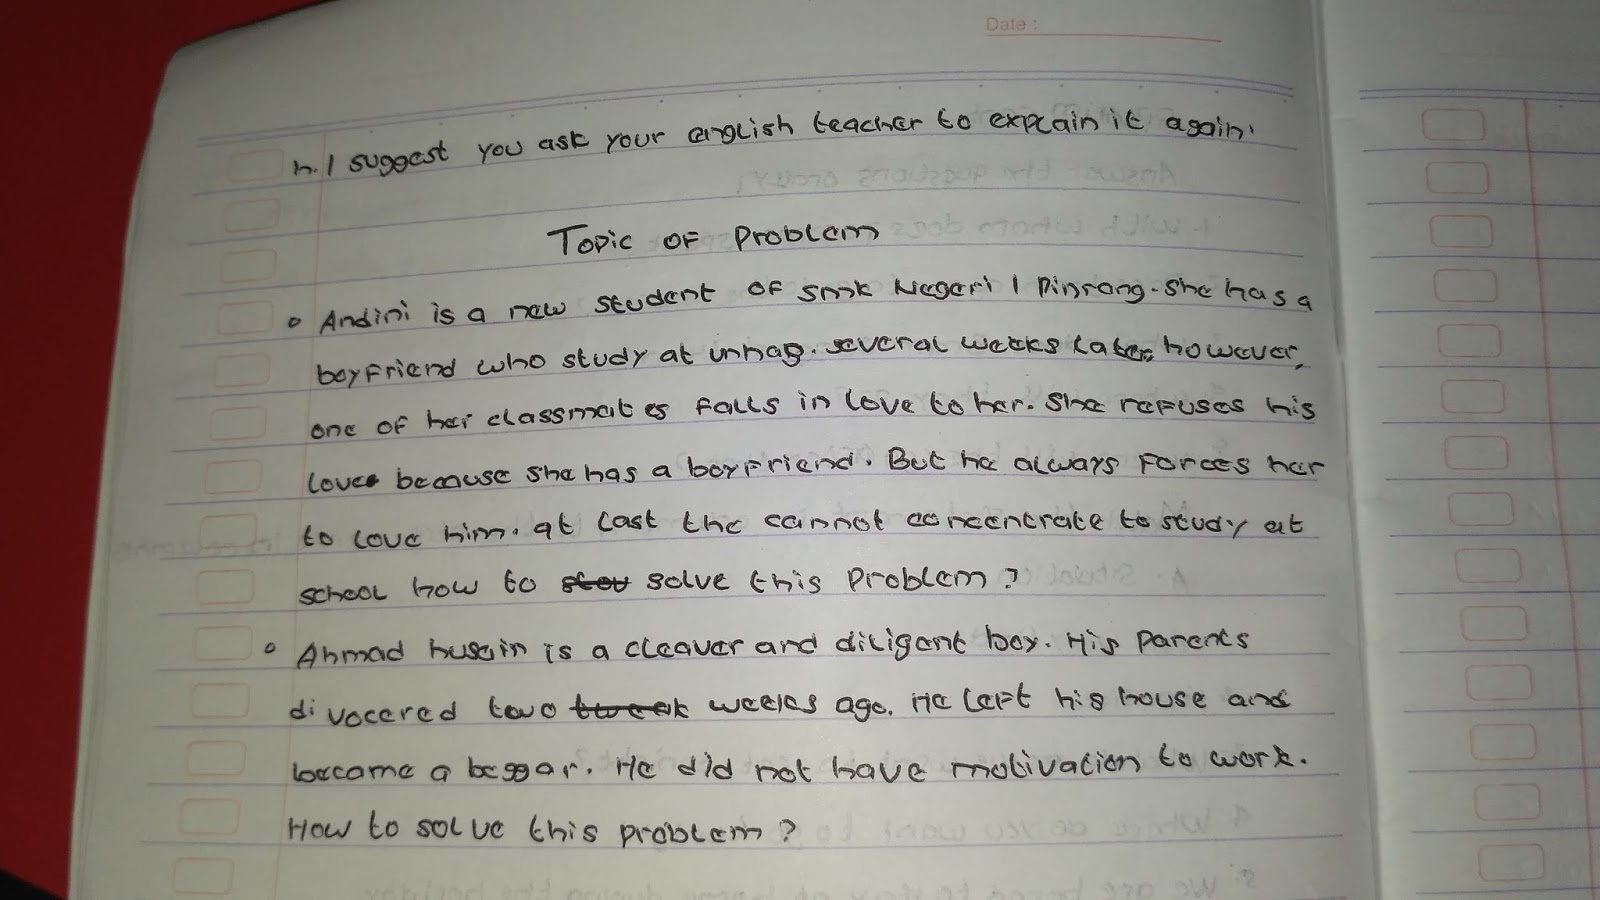 Date :
h. I suggest you ask your english teacher to explain it again.
Topic of Problem
• Andini is a new student of smk Negeri 1 Pinrang. She has a
boyfriend who study at unhas. several weeks later, however,
one of her classmates falls in love to her. She refuses his
love because she has a boyfriend. But he always forces her
to love him. at last the cannot concentrate to study at
school how to solve this problem ?
• Ahmad husain is a cleaver and diligent boy. His parents
divocered two weeks ago. He left his house and
become a beggar. He did not have motivation to work.
How to solve this problem ?